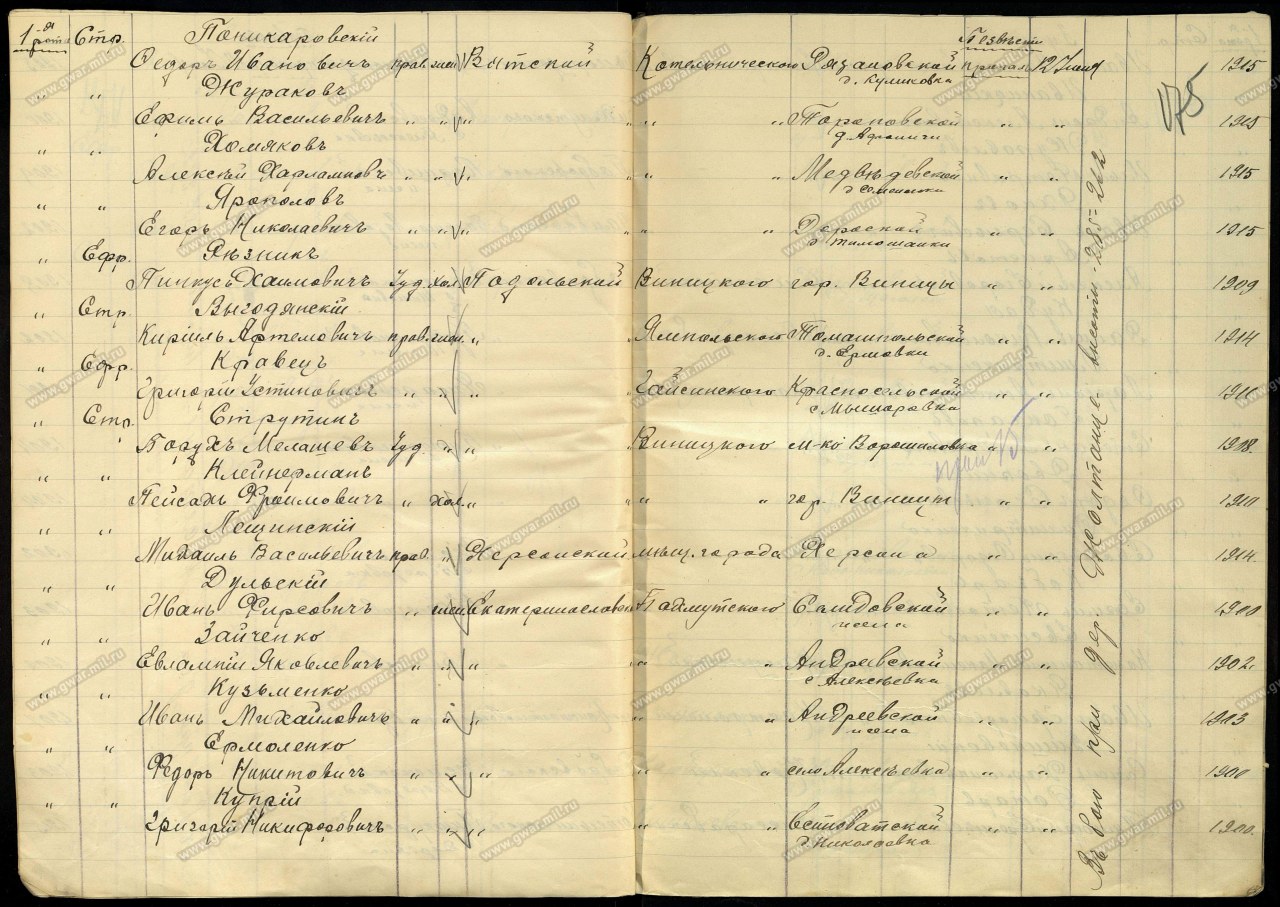 1-я рота Стр. Поникаровскій
Федоръ Ивановичъ прав. жен Вятской Котельническаго Рязановской д. Куликовка Безвѣсти пропал 12 1915
" " Жураковъ
Ефимъ Васильевичъ " " " " " Тороповской " " 1915
" " Хомяковъ
Алексѣй Харламповъ " " " " Медвѣдевской " " 1915
" " Ярополовъ
Егоръ Николаевичъ " " " " " " " 1915
" Ефр. Рѣзникъ
Пинкусъ Хаимовичъ Іуд. хол. Подольской Виницкого гор. Виницы " " 1909
" Стр. Выгодянскій
Кирилъ Артемовичъ прав. жен " Ямпольского Томашпольской д. Ермовки " " 1914
" Ефр. Кравецъ
Григорій Устиновичъ " " " Гайсинского Красносельской с. Мышаровка " " 1911
" Стр. Струтинъ
Борухъ Мелашев Іуд. " " Виницкого м-ко Ворошиловка " " 1908.
" " Клейнерманъ
Пейсахъ Фроимовичъ " хол. " " " гор. Виницы " " 1911
" " Лещинскій
Михаилъ Васильевичъ прав. " Херсонской мѣщ. города Херсона " " 1914.
" " Дульскій
Иванъ Фирсовичъ " жен Екатеринославской Бахмутского " " 1900
" " Зайченко
Евлампій Яковлевичъ " " " " " Андреевской с. Алексѣевка " " 1902.
" " Кузьменко
Иванъ Михайловичъ " " " " " Андреевской " " 1903
" " Ермоленко
Федоръ Никитовичъ " " " " " село Алексѣевка " " 1900
" " Купрій
Григорій Никифоровичъ " " " " " д. Николаевка " " 1900.
Въ бою при дер. Жолтанце высоты - 285= 262
175
www.gwar.mil.ru